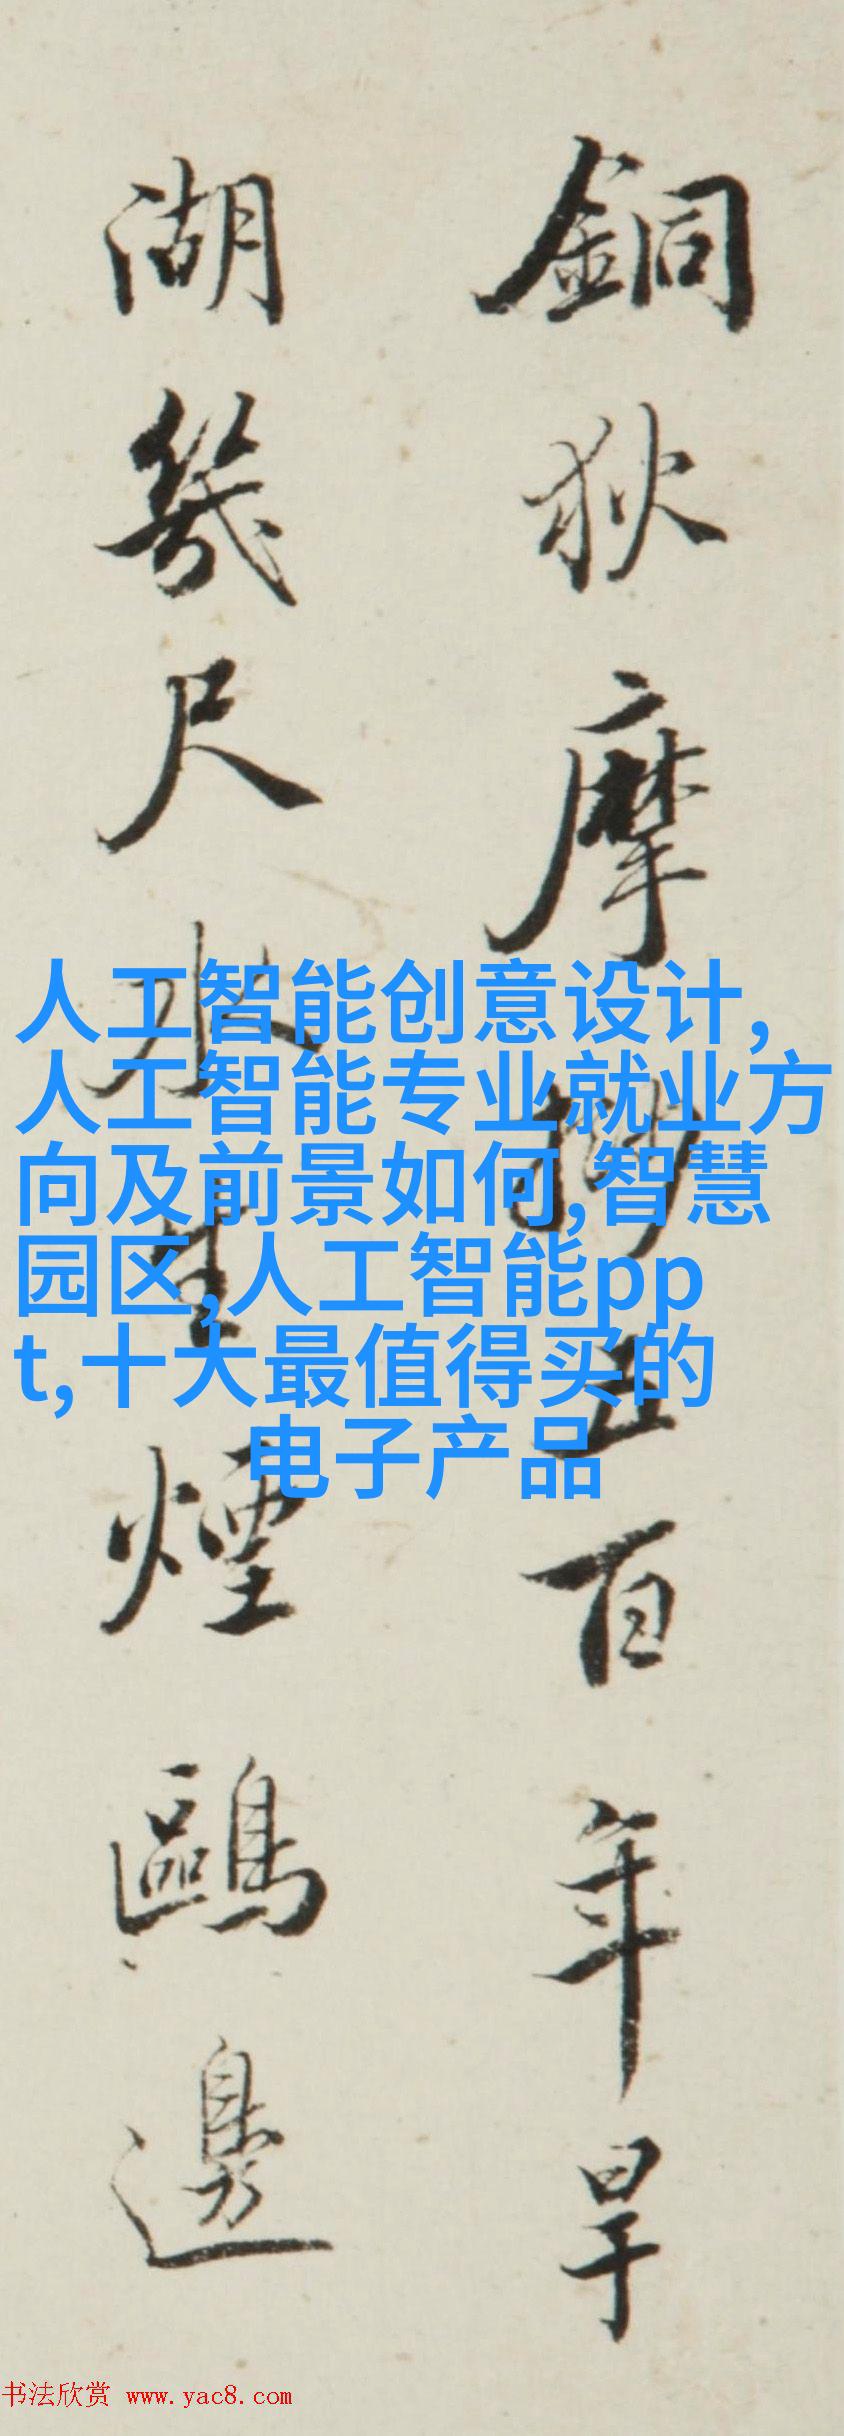 銅狄摩抄五百年早
湖幾尺水生煙鷗邊
人工智能创意设计,
人工智能专业就业方
向及前景如何,智慧
园区,人工智能pp
t,十大最值得买的
电子产品
书法欣赏 www.yac8.com